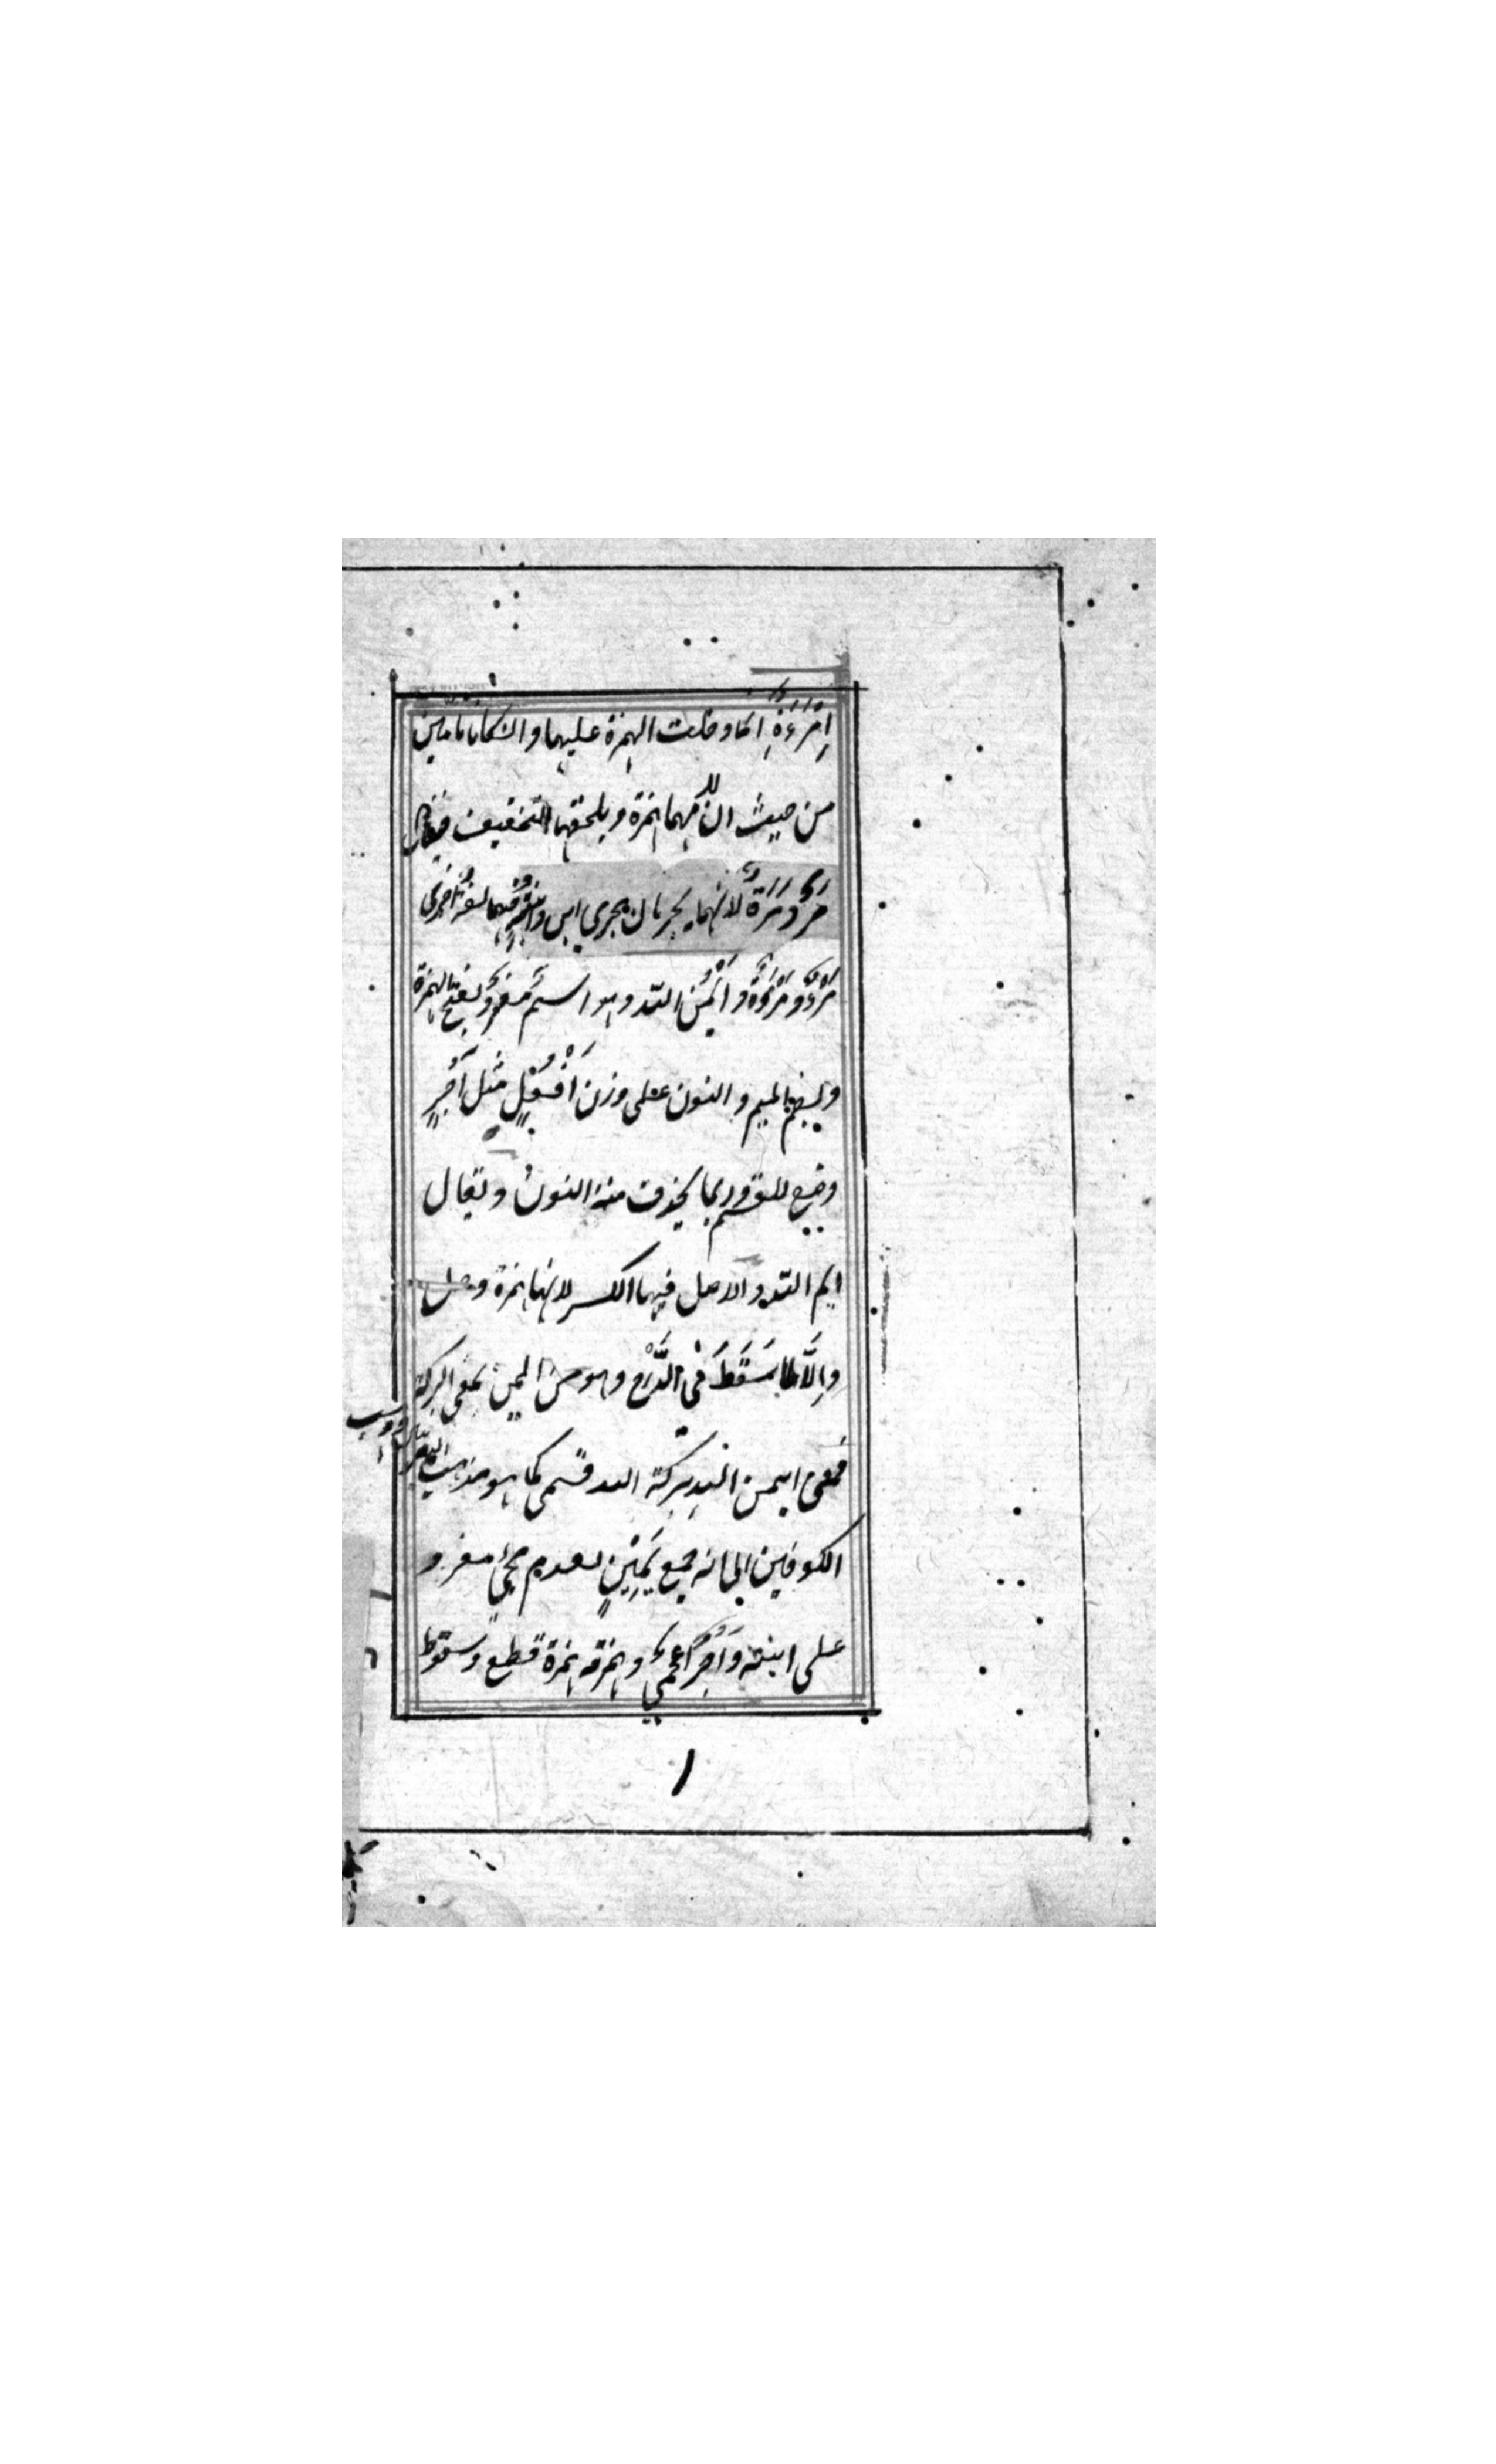 اِمْرَءَةٌ انما دخلت الهمزة عليهما وان كانا تامّين
من حيث ان لامهما همزة ويلحقهما التخفيف فيقال
مَرٌ ومَرَةٌ لانهما يجريان مجرى ابن وابنة وفيهما لغة اخرى
مَرْءٌ ومَرْءَةٌ واَيْمُنُ اللّه وهو اسمٌ مفردٌ بفتح الهمزة
وبضم الميم والنون على وزن اَفْعُلٍ مثل آجُرٍ
وضع للقسم وربما يحذف منه النون ويقال
ايم اللّه والاصل فيهما الكسر لانها همزة وصل
وَاِلَّا لما سَقَطَ فى الدَّرْج وهو من اليمن بمعنى البركة
فمعنى ايمن اللّه بركة اللّه قسمى كما هو مذهب
الكوفيين الى انه جمع يَمِيْنٍ لعدم مجئ مفرد
على ابنته وَآجُرٌ اعجمىٌ وهمزته همزة قطع وسقوط
١